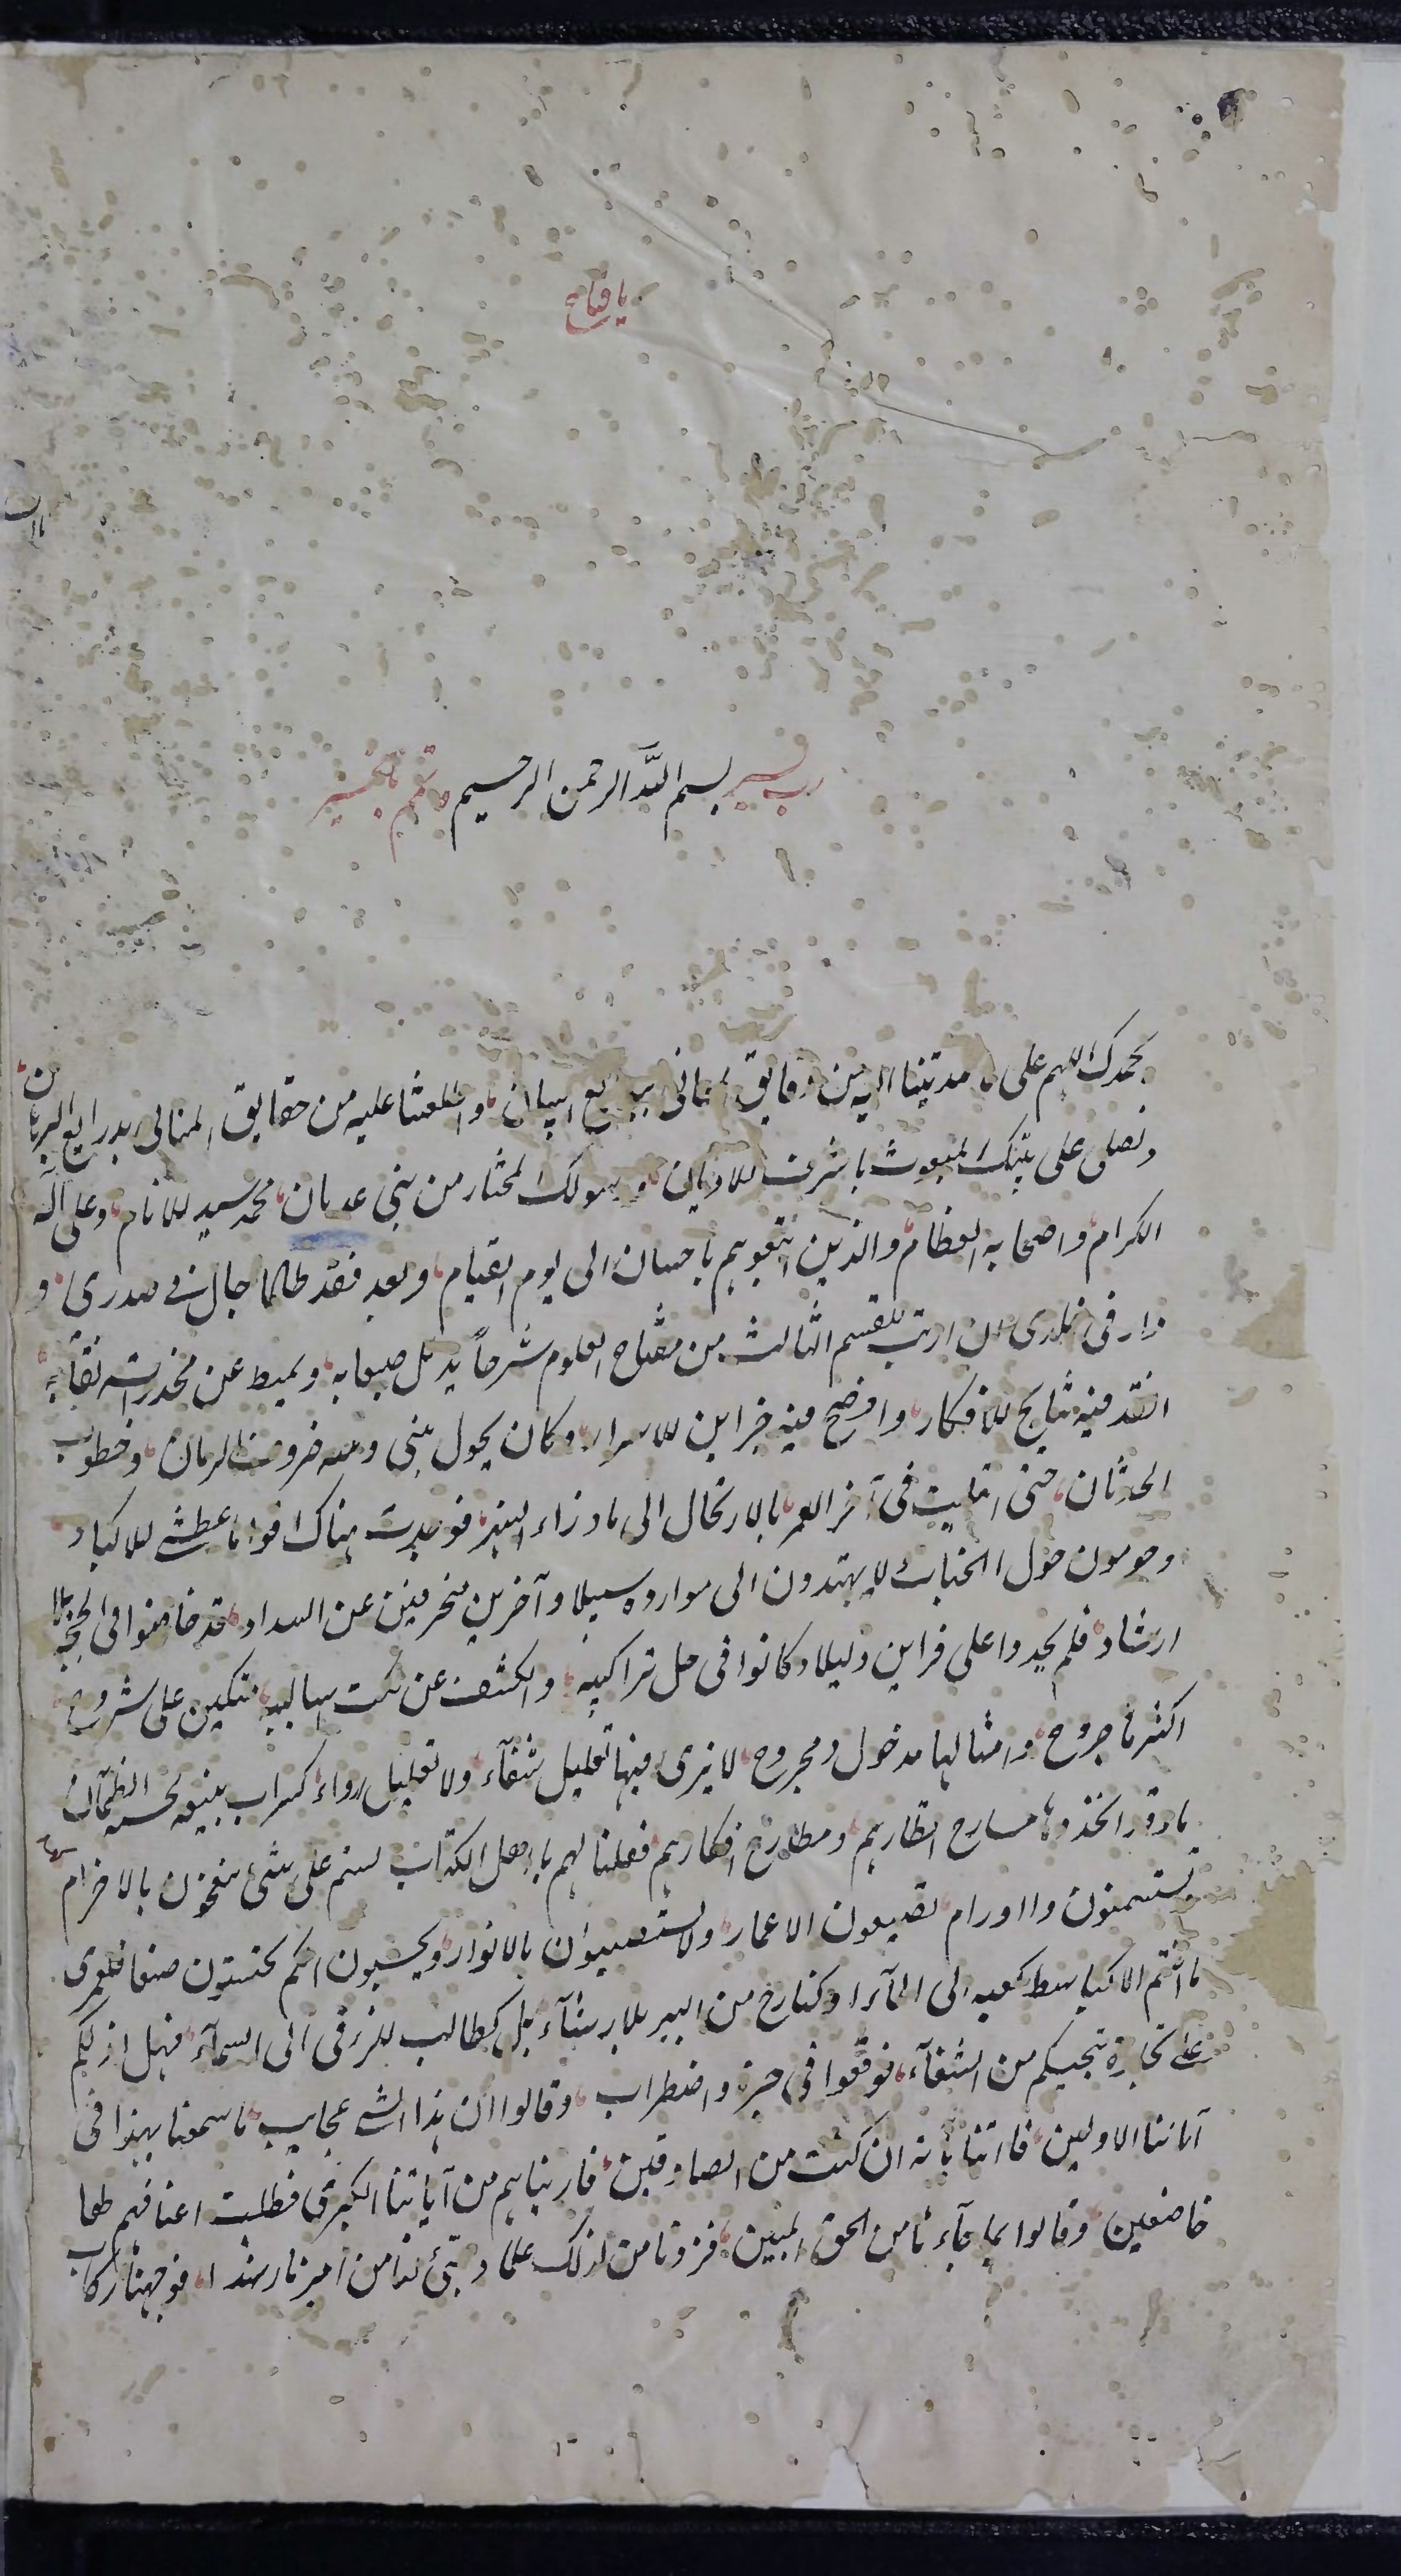 يا فتاح
رب يسر بسم الله الرحمن الرحيم وتمم بالخير
نحمدك اللهم على ما هديتنا اليه من دقايق المعانى ببدايع البيان واطلعتنا عليه من حقايق المثانى بروايع البرهان
ونصلى على نبيك المبعوث باشرف الاديان ورسولك المختار من بنى عدنان محمد سيد الانام وعلى آله
الكرام واصحابه العظام والذين اتبعوهم باحسان الى يوم القيام وبعد فقد طالما جال فى صدرى و
دار فى خلدى ان ارتب للقسم الثالث من مفتاح العلوم شرحاً يذلل صعابه ويميط عن مخدراته نقابه
انقد فيه نتايج الافكار واوضح فيه خزاين الاسرار وكان يحول بينى وبينه صروف الزمان وخطوب
الحدثان حتى ابتليت فى آخر العمر بالارتحال الى ما وراء النهر فوجدت هناك اقواما عطشى الاكباد
وحومون حول الكتاب لا يهتدون الى موارده سبيلا وآخرين منحرفين عن السداد قد خاضوا فى لججه بلا
ارشاد فلم يجدوا على فرايده دليلا وكانوا فى حل تراكيبه والكشف عن نكت اساليبه متكلين على شروح
اكثرها جروح وامثالها مدخول ومجروح لا يرى فيها تعليل شفآء ولا تعليل رواء كسراب بقيعه يحسبه الظمآن
ماء وقد اتخذوها مسارح انظارهم ومطارح افكارهم فقلنا لهم يا اهل الكتاب لستم على شئ تنفخون بلا ضرام
وتستسمنون ذا اورام تضيعون الاعمار ولا تستضيئون بالانوار وتحسبون انكم تحسنون صنعا فلعمرى
ما انتم الا كباسط كفيه الى المآء او كنازح من البير بلا رشآء بل كطالب للرقى الى السمآء فهل ادلكم
على تجارة تنجيكم من الشقآء فوقعوا فى حيرة واضطراب وقالوا ان هذا لشئ عجاب ما سمعنا بهذا فى
آبائنا الاولين فاتنا بآية ان كنت من الصادقين فاريناهم من آياتنا الكبرى فظلت اعناقهم لها
خاضعين وقالوا بما جآءنا من الحق المبين فزدنا من لدنك علما وهيئ لنا من امرنا رشدا فوجهنا ركاب